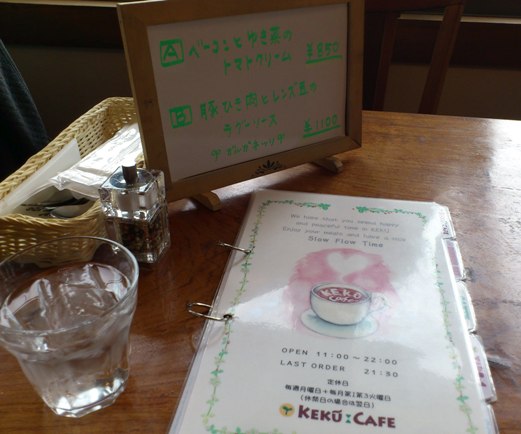 A ベーコンとゆき菜の
トマトクリーム ¥850
B 豚ひき肉とレンズ豆の
ラグーソース ¥1100
We hope that you spend happy
and peaceful time in KEKU
Enjoy your meals and have a nice
Slow Flow Time
KEKU
Cafe
OPEN 11:00~22:00
LAST ORDER 21:30
定休日
毎週月曜日+毎月第1第3火曜日
(休祭日の場合は翌日)
KEKU:CAFE